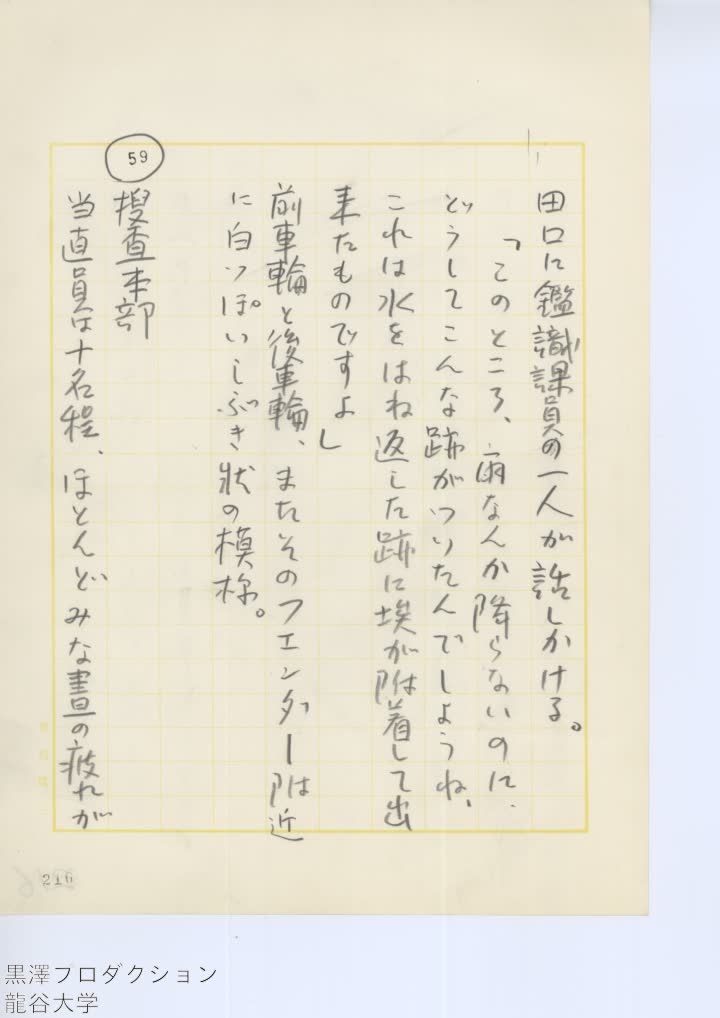 田口に鑑識課員の一人が話しかける。
「このところ、雨なんか降らないのに、
どうしてこんな跡がついたんでしようね、
これは水をはね返した跡に埃が附着して出
来たものですよ」
前車輪と後車輪、またそのフエンダー附近
に白ツぽいしぶき状の模様。
59
捜査本部
当直員は十名程、ほとんどみな晝の疲れが
216
黒澤プロダクション
龍谷大学